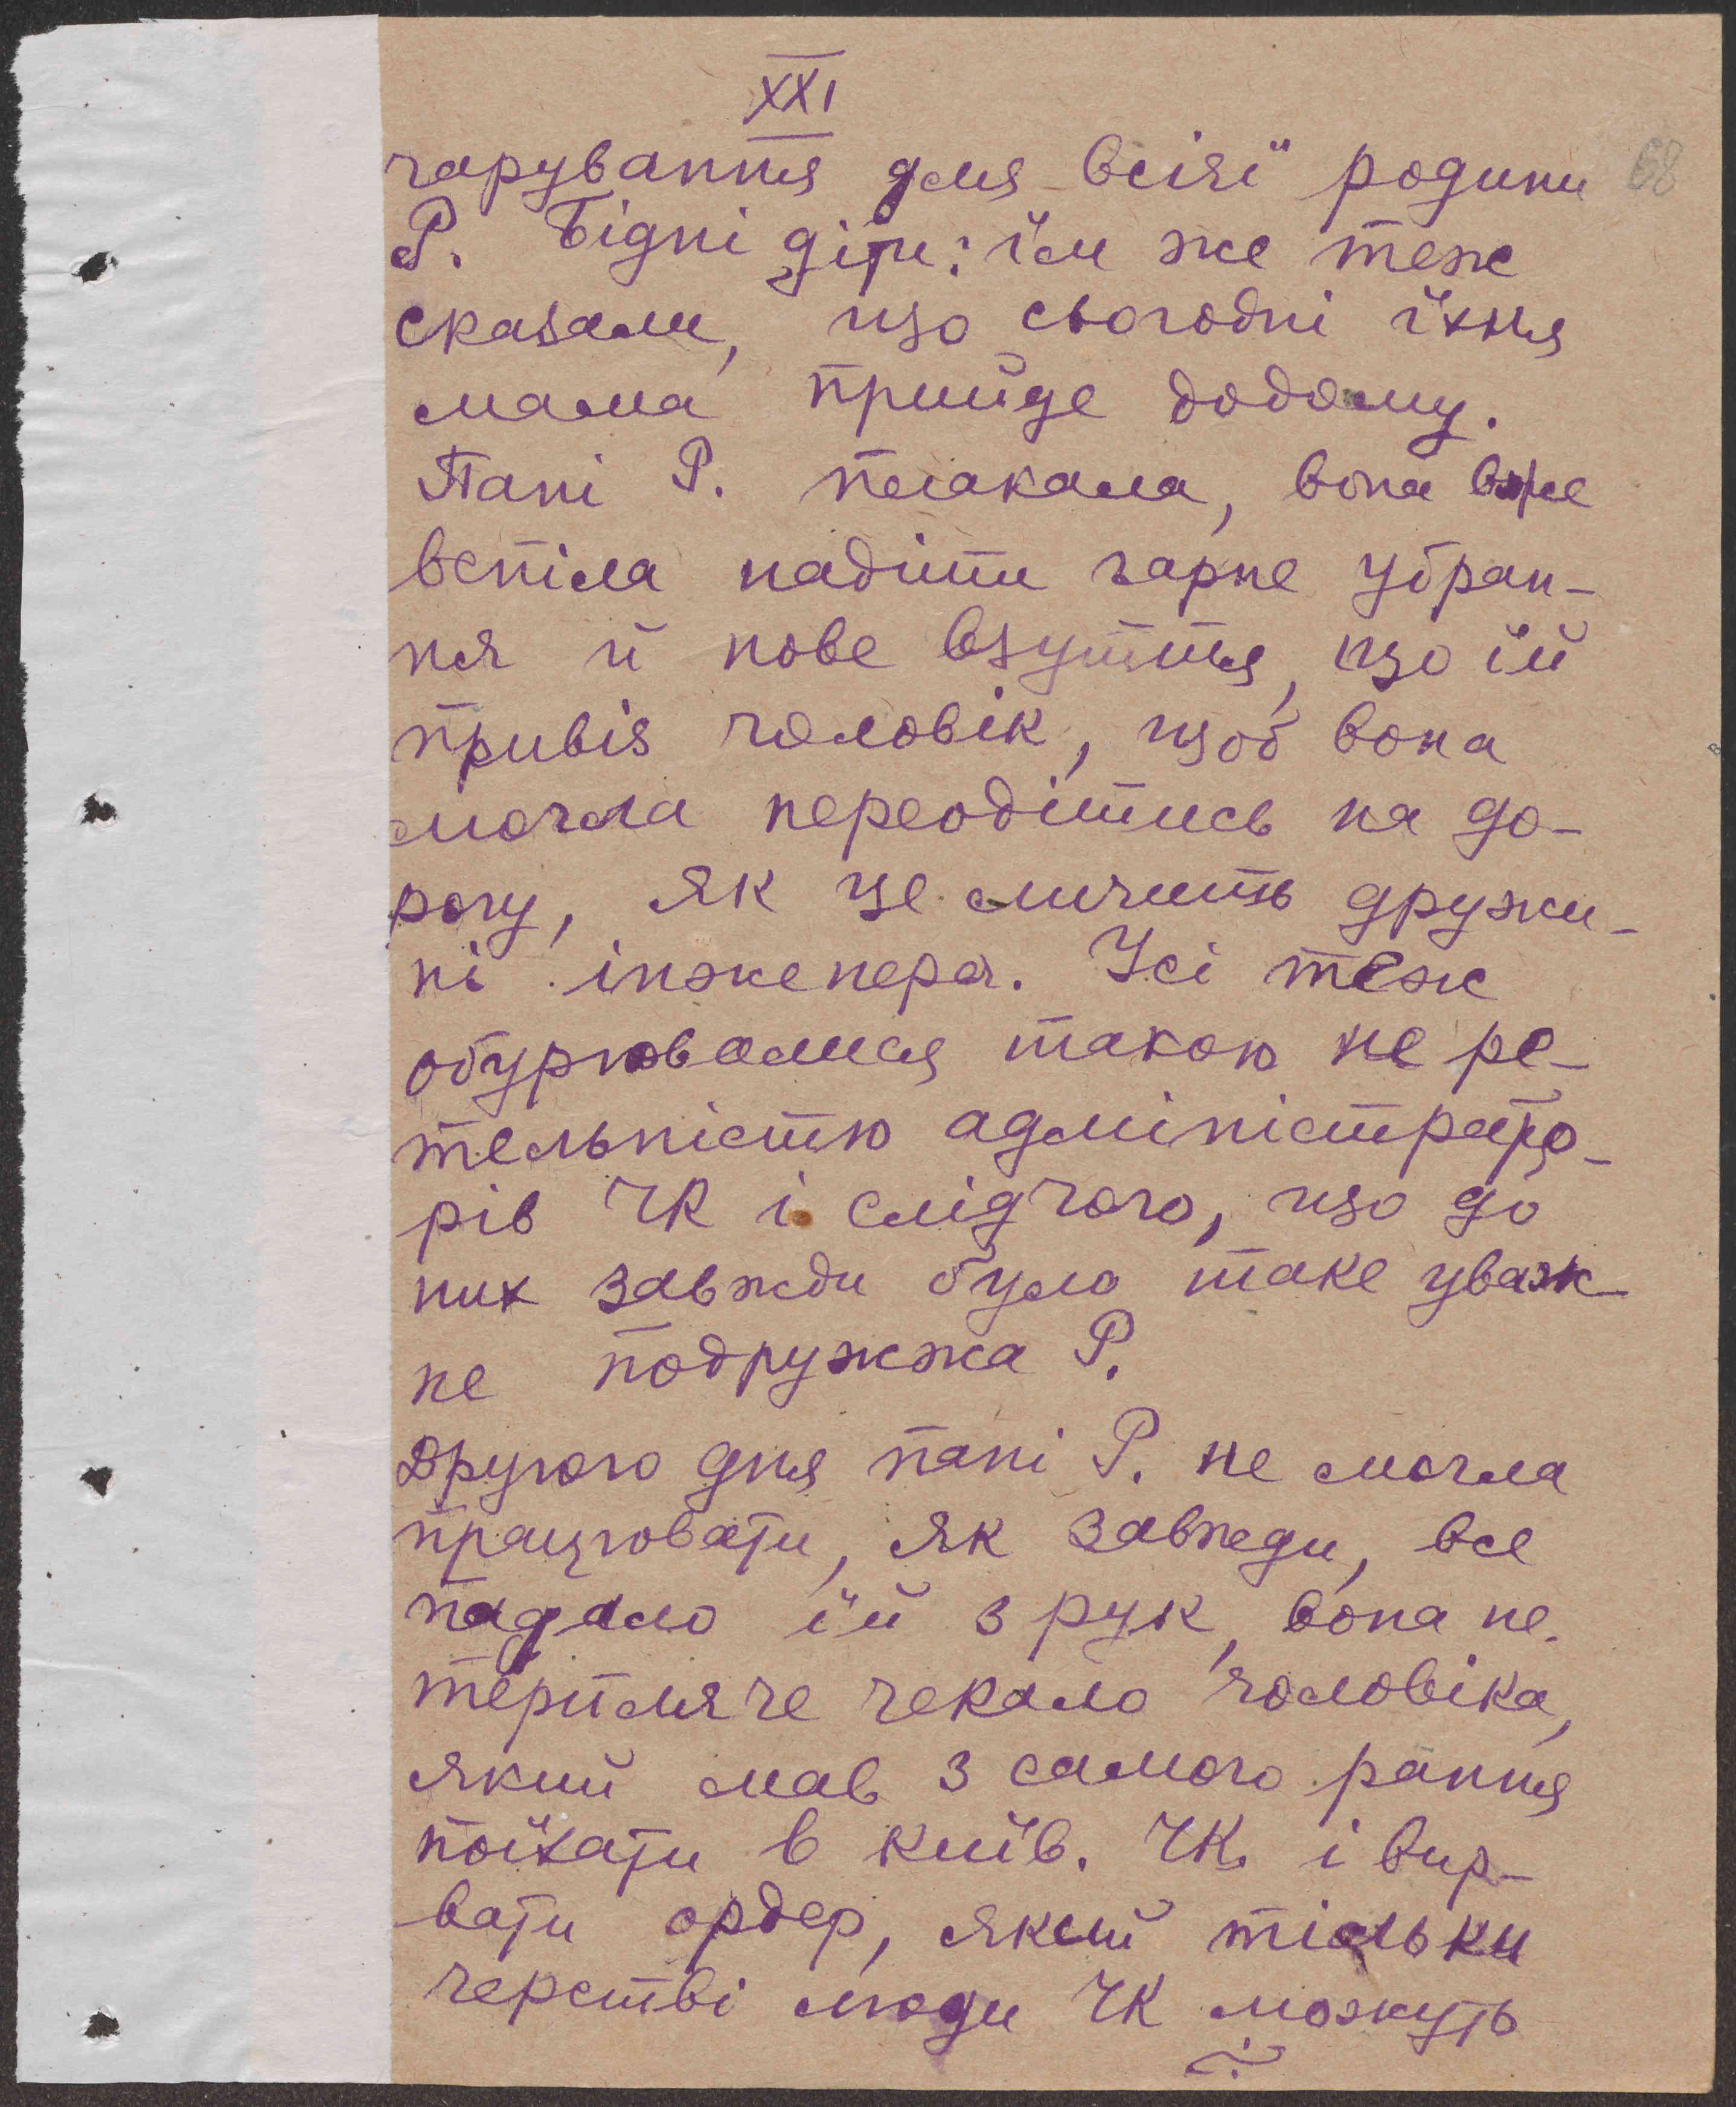 XXI
чарування для всієї родини
68
Р. Бідні діти: їм же теж
сказали, що сьогодні їхня
мама прийде додому.
Пані Р. плакала, вона вже
вспіла надіти гарне убран-
ня й нове взуття, що їй
привіз чоловік, щоб вона
могла переодітись на до-
рогу, як це личить дружи-
ні інженера. Усі теж
обурювалися такою не ре-
тельністю адміністрато-
рів ЧК і слідчого, що до
них завжди було таке уваж-
не подружжа Р.
Другого дня пані Р. не могла
працювати, як завжди, все
падало їй з рук, вона не-
терпляче чекало чоловіка,
який мав з самого рання
поїхати в Київ. ЧК. і вир-
вати ордер, який тільки
черстві люди ЧК можуть